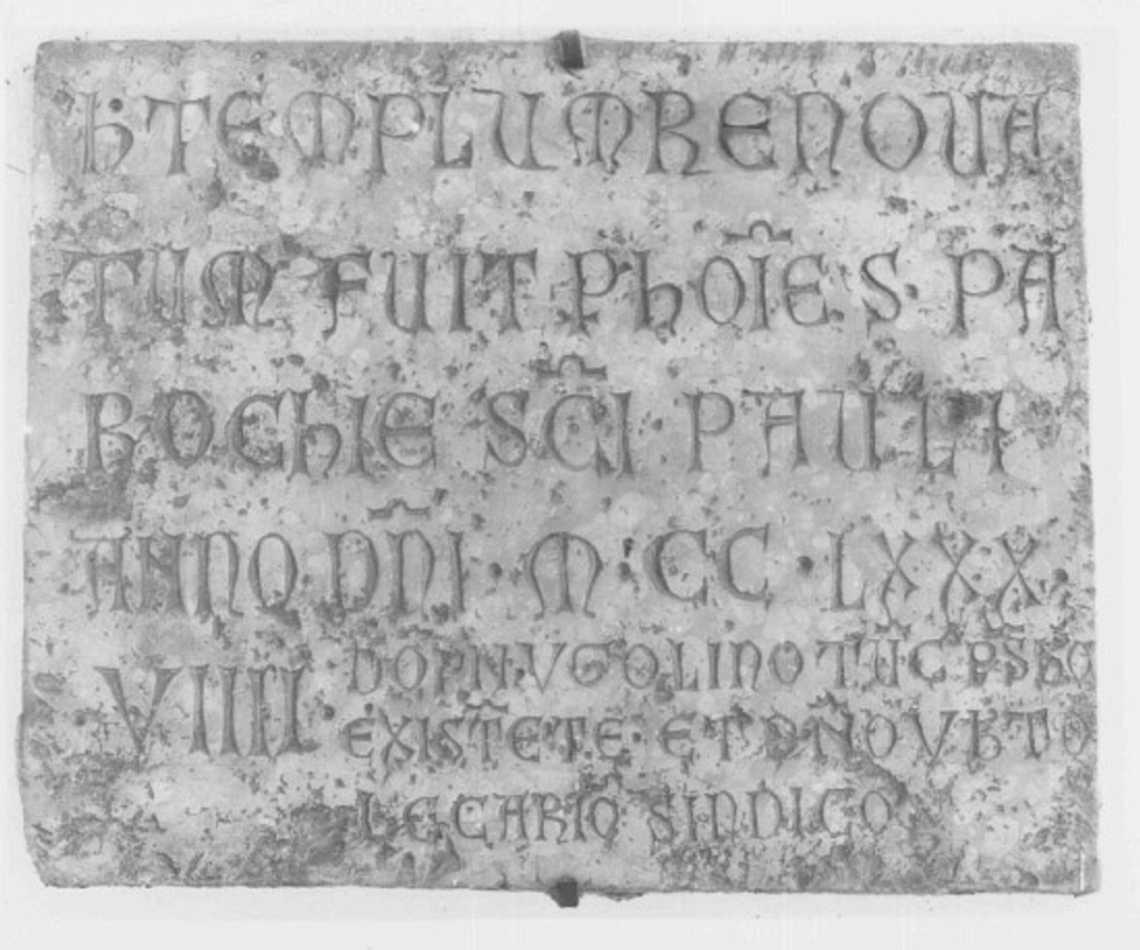 H TEMPLUM RENOVA
TUM FUIT P HOĪES PA
ROCHIE SC̄I PAULI
ANNO DN̄I · M · CC · LXXX ·
VIIII · DOP̄N · VGOLINO TŪC P̄S
EXISTĒTE · ET
LEGARIO SINDICO